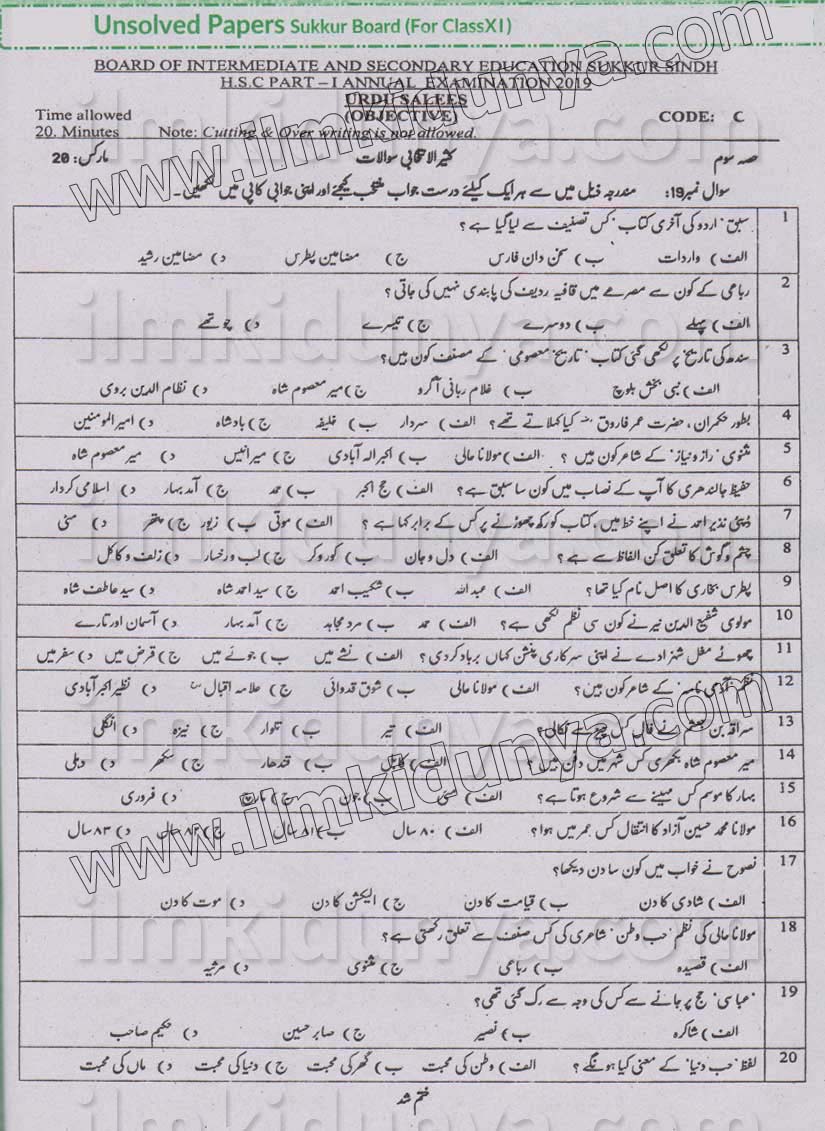 Unsolved Papers Sukkur Board (For ClassXI)
BOARD OF INTERMEDIATE AND SECONDARY EDUCATION SUKKUR SINDH
H.S.C PART – I ANNUAL EXAMINATION 2019
URDU SALEES
Time allowed (OBJECTIVE) CODE: C
20. Minutes Note: Cutting & Over writing is not allowed.
حصہ سوم کثیر الانتخابی سوالات مارکس: 20
سوال نمبر19: مندرجہ ذیل میں سے ہر ایک کیلئے درست جواب منتخب کیجئے اور اپنی جوابی کاپی میں لکھیں۔
1 سبق 'اردو کی آخری کتاب' کس تصنیف سے لیا گیا ہے؟
الف) واردات ب) سخن دان فارس ج) مضامین پطرس د) مضامین رشید
2 رباعی کے کون سے مصرعے میں قافیہ ردیف کی پابندی نہیں کی جاتی؟
الف) پہلے ب) دوسرے ج) تیسرے د) چوتھے
3 سندھ کی تاریخ پر لکھی گئی کتاب 'تاریخ معصومی' کے مصنف کون ہیں؟
الف) نبی بخش بلوچ ب) غلام ربانی آگرو ج) میر معصوم شاہ د) نظام الدین ہروی
4 بطور حکمران، حضرت عمر فاروق کیا کہلاتے تھے؟ الف) سردار ب) خلیفہ ج) بادشاہ د) امیر المومنین
5 مثنوی 'راز و نیاز' کے شاعر کون ہیں؟ الف) مولانا حالی ب) اکبر الہ آبادی ج) میر انیس د) میر معصوم شاہ
6 حفیظ جالندھری کا آپ کے نصاب میں کون سا سبق ہے؟ الف) حج اکبر ب) حمد ج) آمد بہار د) اسلامی کردار
7 ڈپٹی نذیر احمد نے اپنے خط میں، کتاب کو رکھ چھوڑنے پر کس کے برابر کہا ہے؟ الف) موتی ب) زیور ج) پتھر د) مٹی
8 چشم و گوش کا تعلق کن الفاظ سے ہے؟ الف) دل و جان ب) کور و کر ج) لب و رخسار د) زلف و کاکل
9 پطرس بخاری کا اصل نام کیا تھا؟ الف) عبد اللہ ب) شکیب احمد ج) سید احمد شاہ د) سید عاطف شاہ
10 مولوی شفیع الدین نیر نے کون سی نظم لکھی ہے؟ الف) حمد ب) مرد مجاہد ج) آمد بہار د) آسمان اور تارے
11 چھوٹے مغل شہزادے نے اپنی سرکاری پنشن کہاں برباد کر دی؟ الف) نشے میں ب) جوئے میں ج) قرض میں د) سفر میں
12 نظم 'آدمی نامہ' کے شاعر کون ہیں؟ الف) مولانا حالی ب) شوق قدوائی ج) علامہ اقبال د) نظیر اکبر آبادی
13 سراقہ بن جعشم نے فال کس چیز سے نکالی؟ الف) تیر ب) تلوار ج) نیزہ د) انگلی
14 میر معصوم شاہ بکھری کس شہر میں دفن ہیں؟ الف) کابل ب) قندھار ج) سکھر د) دہلی
15 بہار کا موسم کس مہینے سے شروع ہوتا ہے؟ الف) مئی ب) جون ج) مارچ د) فروری
16 مولانا محمد حسین آزاد کا انتقال کس عمر میں ہوا؟ الف) ۸۰ سال ب) ۸۱ سال ج) ۸۲ سال د) ۸۳ سال
17 نصوح نے خواب میں کون سا دن دیکھا؟
الف) شادی کا دن ب) قیامت کا دن ج) الیکشن کا دن د) موت کا دن
18 مولانا حالی کی نظم 'حب وطن' شاعری کی کس صنف سے تعلق رکھتی ہے؟
الف) قصیدہ ب) رباعی ج) مثنوی د) مرثیہ
19 'عباسی' حج پر جانے سے کس کی وجہ سے رک گئی تھی؟
الف) شاکرہ ب) نصیر ج) صابر حسین د) حکیم صاحب
20 لفظ 'حب دنیا' کے معنی کیا ہونگے؟ الف) وطن کی محبت ب) گھر کی محبت ج) دنیا کی محبت د) ماں کی محبت
ختم شد
www.ilmkidunya.com
www.ilmkidunya.com
ilmkidunya.com
ilmkidunya.com
ilmkidunya.com
ilmkidunya.com
ilmkidunya.com
ilmkidunya.com